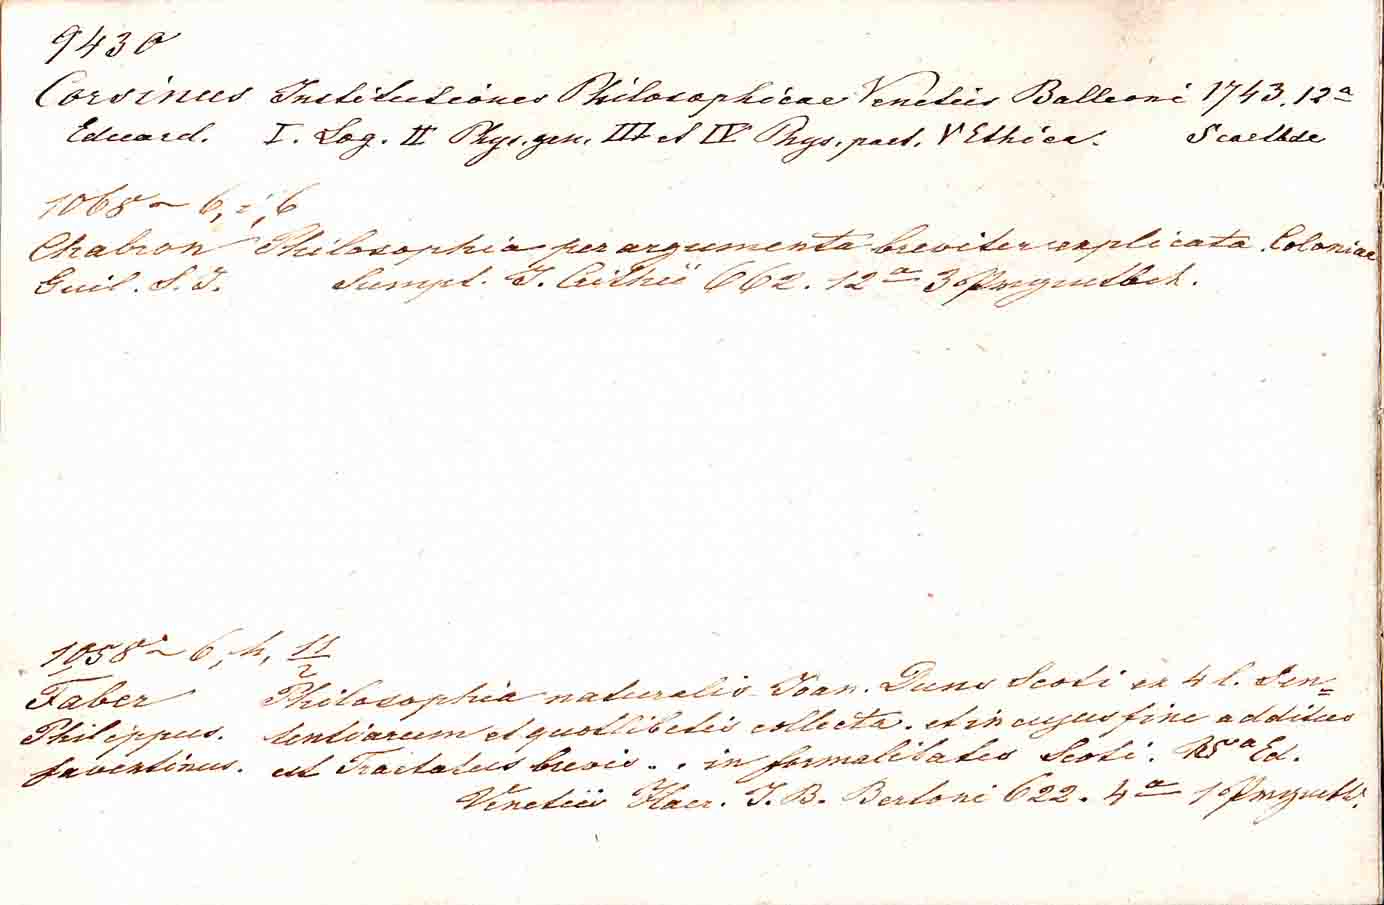 9430
Corsinus Institutiones Philosophicae Venetiis Balleoni 1743. 12a
Eduard. I. Log. II Phys. gen. III et IV Phys. part. V Ethica.
1068 6, 6
Chabron Philosophia per argumenta breviter explicata. Coloniae
Guil. S.J. Sumpt. J. 662. 12a 3
1058 6, h, 11/2
Faber Philosophia naturalis Joan. Duns Scoti ex 4 l. Sen=
Philippus. tentiarum et quotlibetis collecta. et in cujus fine additus
faventinus. est Tractatus brevis . . in formalitates Scoti. Ed.
Venetiis Haer. J. B. Bertoni 622. 4a 1